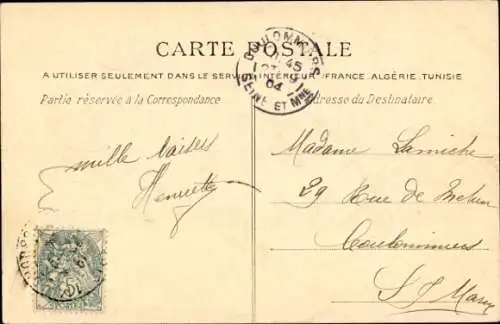 CARTE POSTALE
A UTILISER SEULEMENT DANS LE SERVICE INTÉRIEUR (FRANCE, ALGÉRIE, TUNISIE
Partie réservée à la Correspondance
Adresse du Destinataire.
COULOMMIERS
45
04
SEINE ET MNE
mille baisers
Henriette
Madame Lamiche
29 Rue de Melun
Coulommiers
S/Marne